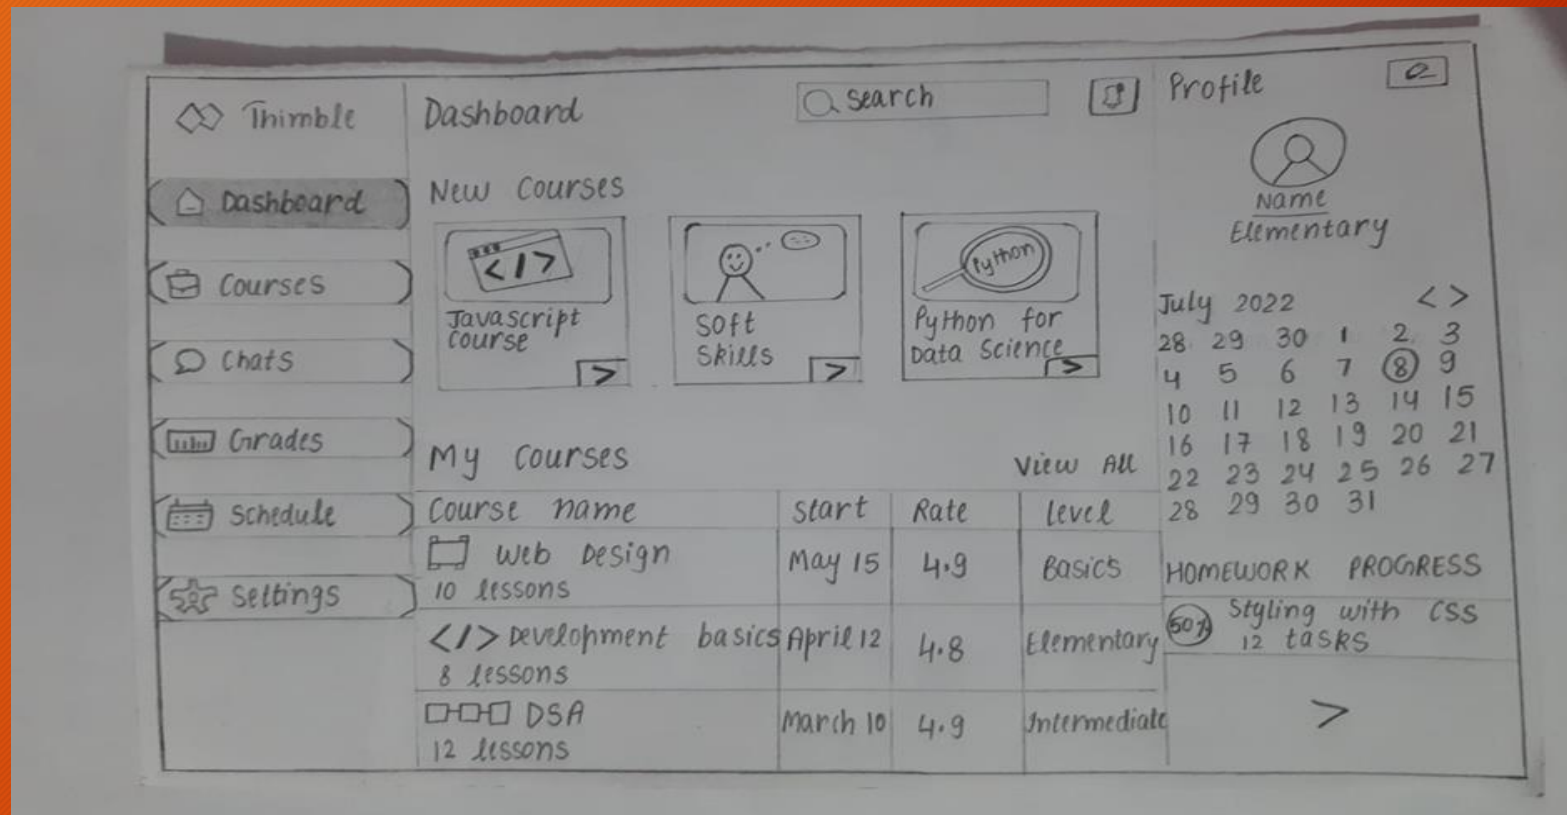 Thimble
Dashboard
Courses
Chats
Grades
Schedule
Settings
Dashboard
Search
New Courses
</>
Javascript
Course
>
Soft
Skills
>
Python
Python for
Data Science
>
My Courses
View All
Course name Start Rate Level
Web Design May 15 4.9 Basics
10 lessons
</> Development basics April 12 4.8 Elementary
8 lessons
DSA March 10 4.9 Intermediate
12 lessons
Profile
Name
Elementary
July 2022 < >
28 29 30 1 2 3
4 5 6 7 8 9
10 11 12 13 14 15
16 17 18 19 20 21
22 23 24 25 26 27
28 29 30 31
HOMEWORK PROGRESS
50% Styling with CSS
12 tasks
>